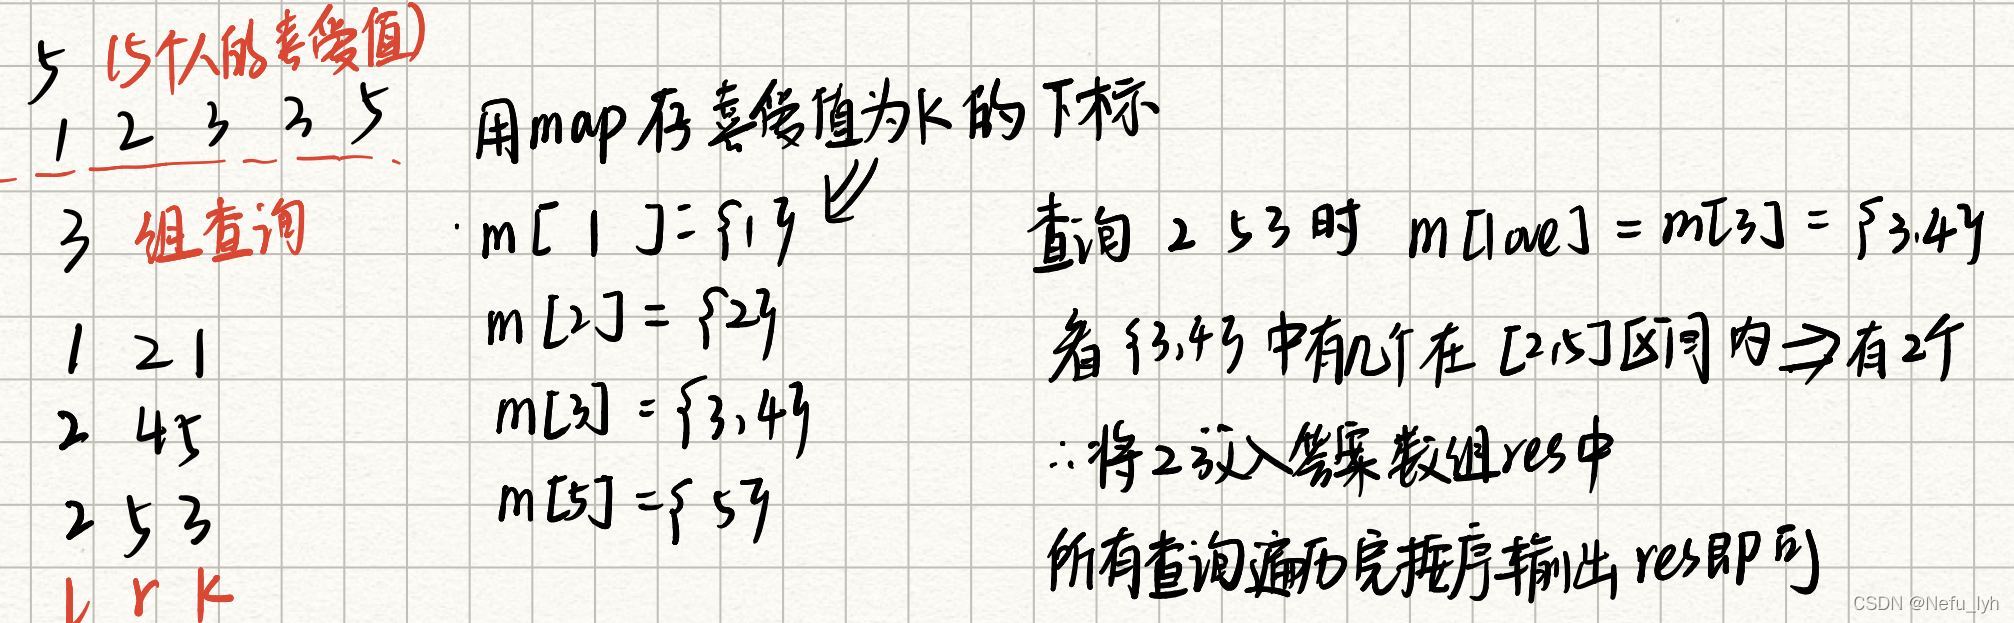 5 (5个人的喜爱值)
1 2 3 3 5
3 组查询
1 2 1
2 4 5
2 5 3
l r k
用map存喜爱值为k的下标
m[1]={1}
m[2]={2}
m[3]={3,4}
m[5]={5}
查询 2 5 3时 m[love]=m[3]={3.4}
看{3,4}中有几个在[2,5]区间内⇒有2个
∴将2放入答案数组res中
所有查询遍历完按序输出res即可
CSDN @Nefu_lyh